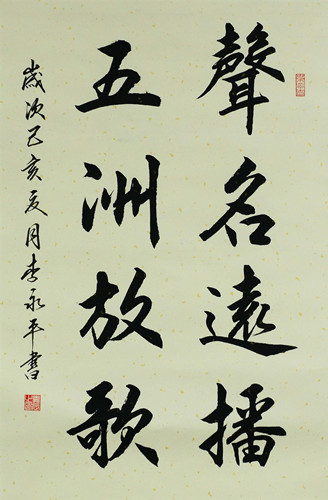 聲名遠播
五洲放歌
歲次己亥夏月李永平書